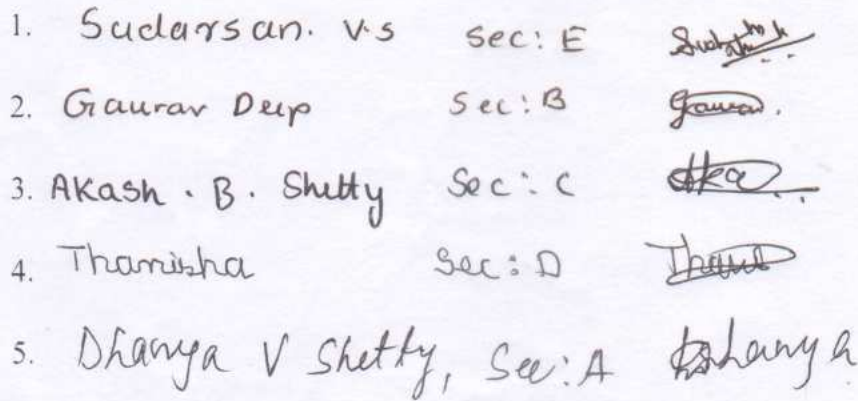 1. Sudarsan. V.S Sec: E
2. Gaurav Deep Sec: B Gaurav.
3. Akash . B . Shetty Sec: C
4. Thanisha Sec: D
5. Dhanya V Shetty, Sec: A Dhanya